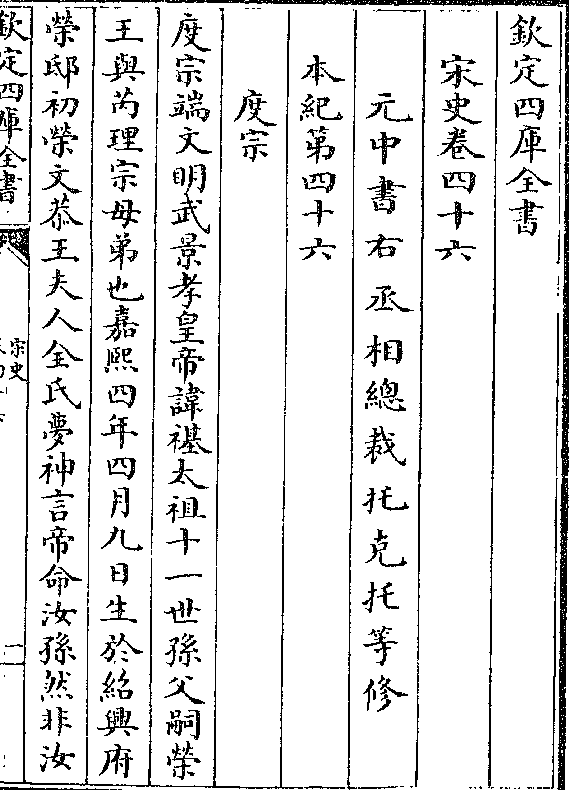 欽定四庫全書
宋史卷四十六
元中書右丞相總裁托克托等修
本紀第四十六
度宗
度宗端文明武景孝皇帝諱禥太祖十一世孫父嗣榮
王與芮理宗母弟也嘉熙四年四月九日生於紹興府
榮邸初榮文恭王夫人全氏夢神言帝命汝孫然非汝
欽定四庫全書
宋史